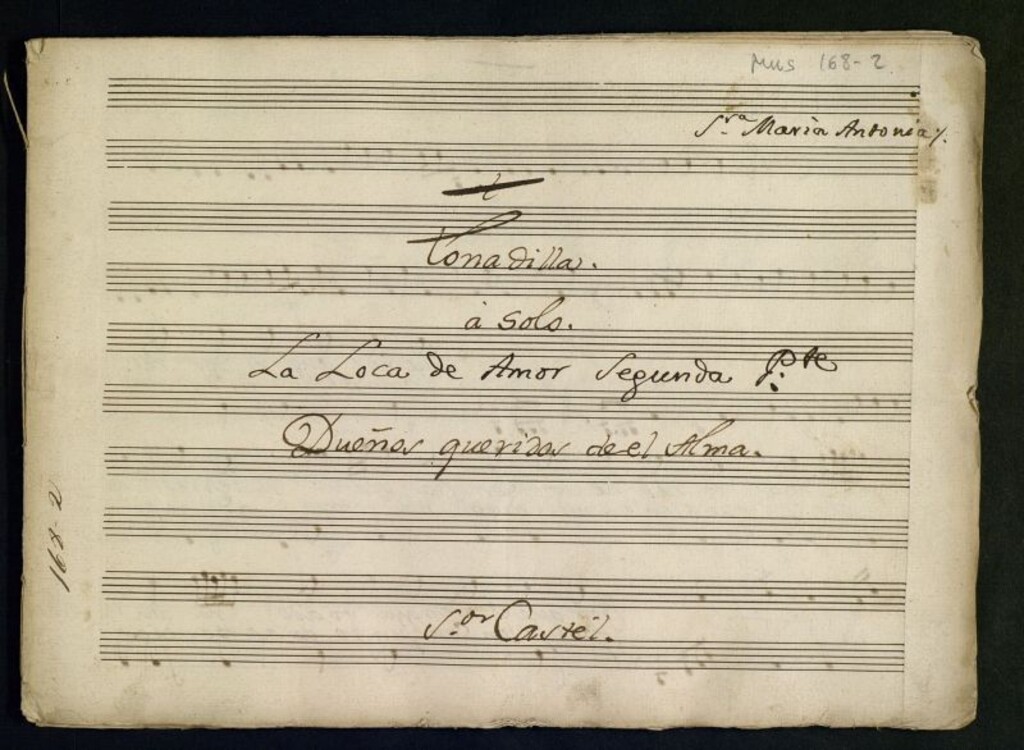 Mus 168-2
S.ra Maria Antonia
t
Tonadilla.
à solo.
La Loca de Amor Segunda P.te
Dueños queridos de el Alma.
168-2
S.or Castel.